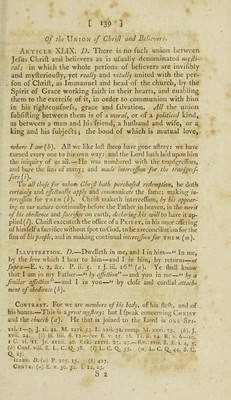 [ 139 ]
Of the UNION of Christ and Believers.
ARTICLE XLIX. D. There is no such union between
Jesus Christ and believers as is usually denominated mysti-
cal; in which the whole persons of believers are invisibly
and mysteriously, yet really and vitally united with the per-
son of Christ, as Immanuel and head of the church, by the
Spirit of Grace working faith in their hearts, and enabling
them to the exercise of it, in order to communion with him
in his righteousness, grace and salvation. All the union
subsisting between them is of a moral, or of a political kind,
as between a man and his friend, a husband and wife, or a
king and his subjects; the bond of which is mutual love,
where I am (b). All we like lost sheep have gone astray: we have
turned every one to his own way: and the Lord hath laid upon him
the iniquity of us all.—He was numbered with the transgressors,
and bare the sins of many; and made intercession for the transgres-
sors (i).
To all those for whom Christ hath purchased redemption, he doth
certainly and effectually apply and communicate the same; making in-
tercession for THEM (k). Christ maketh intercession, by his appear-
ing in our nature continually before the Father in heaven, in the merit
of his obedience and sacrifice on earth, declaring his will to have it ap-
plied (l). Christ executeth the office of a PRIEST, in his once offering
of himself a sacrifice without spot to God, to be a reconciliation for the
sins of his people, and in making continual intercession for THEM (m).
ILLUSTRATION. D.—Dwelleth in me, and I in him—" In me,
by the love which I bear to him—and I in him, by returns—
Supra—E. v. 2, &c. P. ii. 5. 1 J. iii. 16" (a). Ye shall know
that I am in my Father—" by affection"—and you in me—" by a
similar affection"—and I in you—" by close and cordial attach-
ment of obedience (b).
CONTRAST. For we are members of his body, of his flesh, and of
his bones.—This is a great mystery: but I speak concerning CHRIST
and the church (a). He that is joined to the Lord is ONE SPI-
ILLUS. D. (a) P. 205. 15. (b) 217.
CONTR. (a) E. v. 30, 31. 1 I2, 23.
S 2